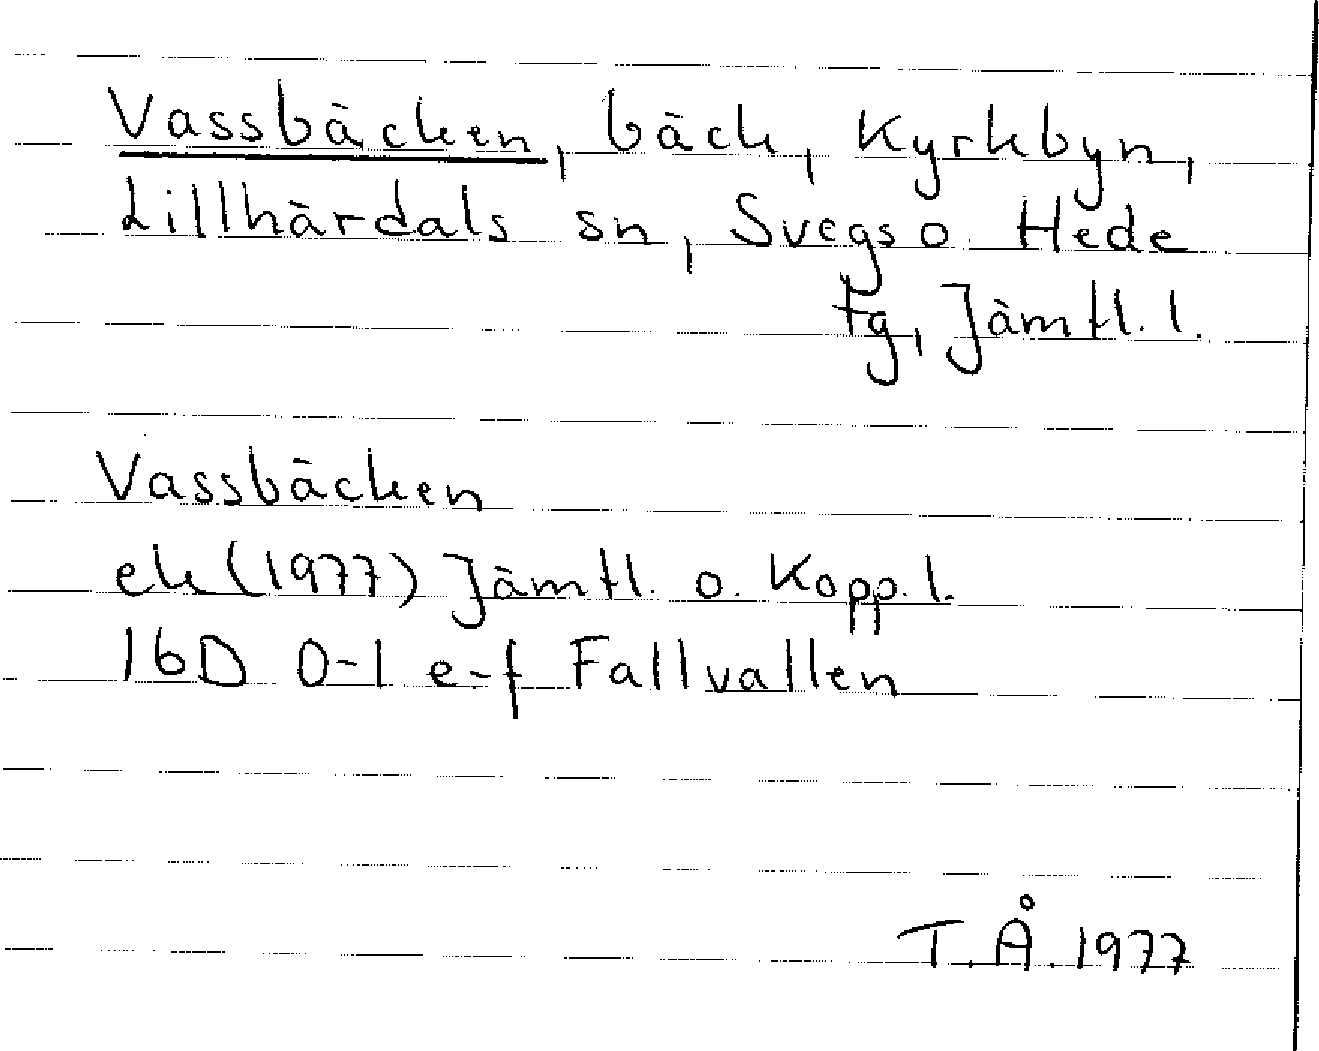 Vassbäcken, bäck, Kyrkbyn,
Lillhärdals sn, Svegs o Hede
tg, Jämtl. l.
Vassbäcken
ek (1977) Jämtl. o. Kopp. l.
16D 0-1 e-f Fallvallen
T.Å. 1977